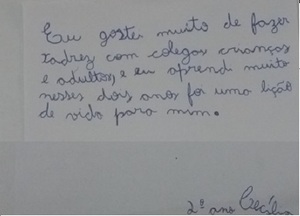 Eu gostei muito de fazer
xadrez com colegas crianças
e adultos e eu aprendi muito
nesses dois anos foi uma lição
de vida para mim.
2º ano Cecília